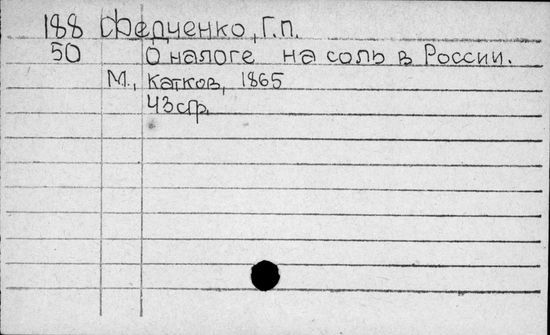 188 Федченко, Г.П.
50 О налоге на соль в России.
М., Катков, 1865
43 стр.